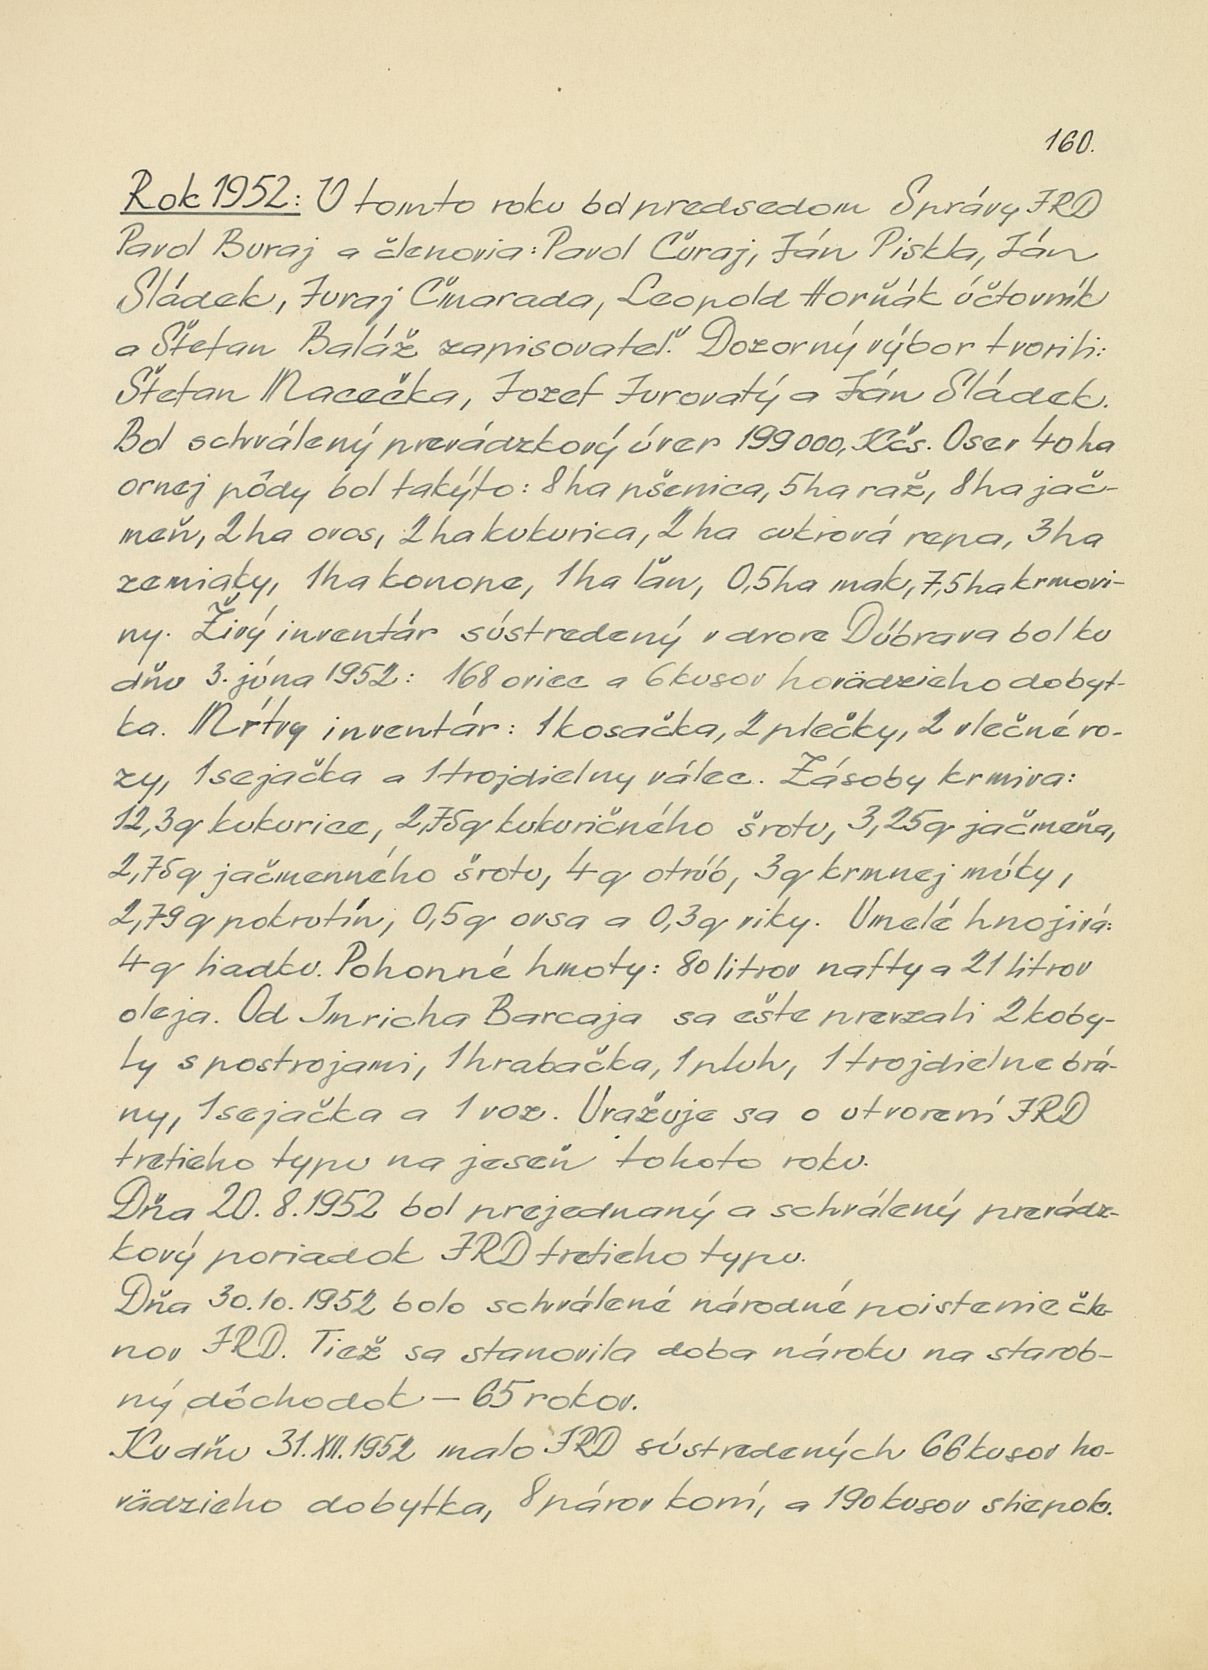 160.
Rok 1952: V tomto roku bol predsedom Správy JRD
Pavol Buraj a členovia: Pavol Čuraj, Ján Piskla, Ján
Sládek, Juraj Čmarada, Leopold Horňák účtovník
a Štefan Baláž zapisovateľ. Dozorný výbor tvorili:
Štefan Macečka, Jozef Jurovatý a Ján Sládek.
Bol schválený prevádzkový úver 199000,Kčs. Osev 40 ha
ornej pôdy bol takýto: 8 ha pšenica, 5 ha raž, 8 ha jač-
meň, 2 ha ovos, 2 ha kukurica, 2 ha cukrová repa, 3 ha
zemiaky, 1 ha konope, 1 ha ľan, 0,5 ha mak, 7,5 ha krmovi-
ny. Živý inventár sústredený v dvore Dúbrava bol ku
dňu 3. júna 1952: 168 oviec a 6 kusov hovädzieho dobyt-
ka. Mŕtvy inventár: 1 kosačka, 2 plečky, 2 vlečné vo-
zy, 1 sejačka a 1 trojdielny válec. Zásoby krmiva:
12,3 q kukurice, 2,75 q kukuričného šrotu, 3,25 q jačmeňa,
2,75 q jačmenného šrotu, 4 q otrúb, 3 q krmnej múky,
2,79 q pokrutín, 0,5 q ovsa a 0,3 q viky. Umelé hnojivá:
4 q liadku. Pohonné hmoty: 80 litrov nafty a 21 litrov
oleja. Od Imricha Barcaja sa ešte prevzali 2 koby-
ly s postrojami, 1 hrabačka, 1 pluh, 1 trojdielne brá-
ny, 1 sejačka a 1 voz. Uvažuje sa o utvorení JRD
tretieho typu na jeseň tohoto roku.
Dňa 20. 8. 1952 bol prejednaný a schválený prevádz-
kový poriadok JRD tretieho typu.
Dňa 30. 10. 1952 bolo schválené národné poistenie čle-
nov JRD. Tiež sa stanovila doba nároku na starob-
ný dôchodok – 65 rokov.
Ku dňu 31. XII. 1952 malo JRD sústredených 66 kusov ho-
vädzieho dobytka, 8 párov koní, a 190 kusov sliepok.